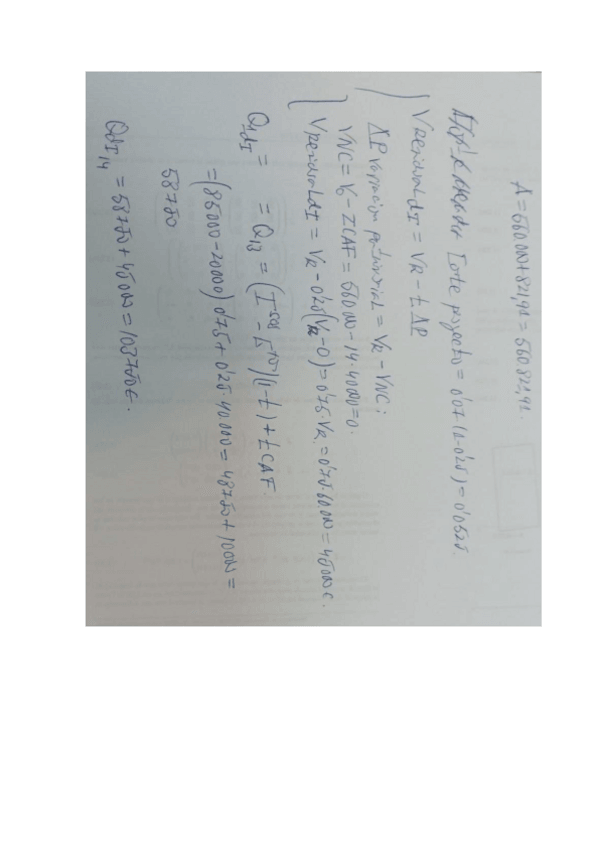 A = 560000 + 821,92 = 560821,92.
Coste proyecto = 0'07 (1-0'25) = 0'0525.
VResidual dI = VR - t ΔP
ΔP variación patrimonial = VR - VNC;
VNC = V0 - ΣCAF = 560000 - 14·40000 = 0.
VResidual dI = VR - 0'25(VR - 0) = 0'75·VR = 0'75·60000 = 45000€.
Q1dI = = Q13 = (I - G)(1-t) + t CAF.
= (85000 - 20000) 0'75 + 0'25·40000 = 48750 + 10000 =
58750
QdI14 = 58750 + 45000 = 103750€.